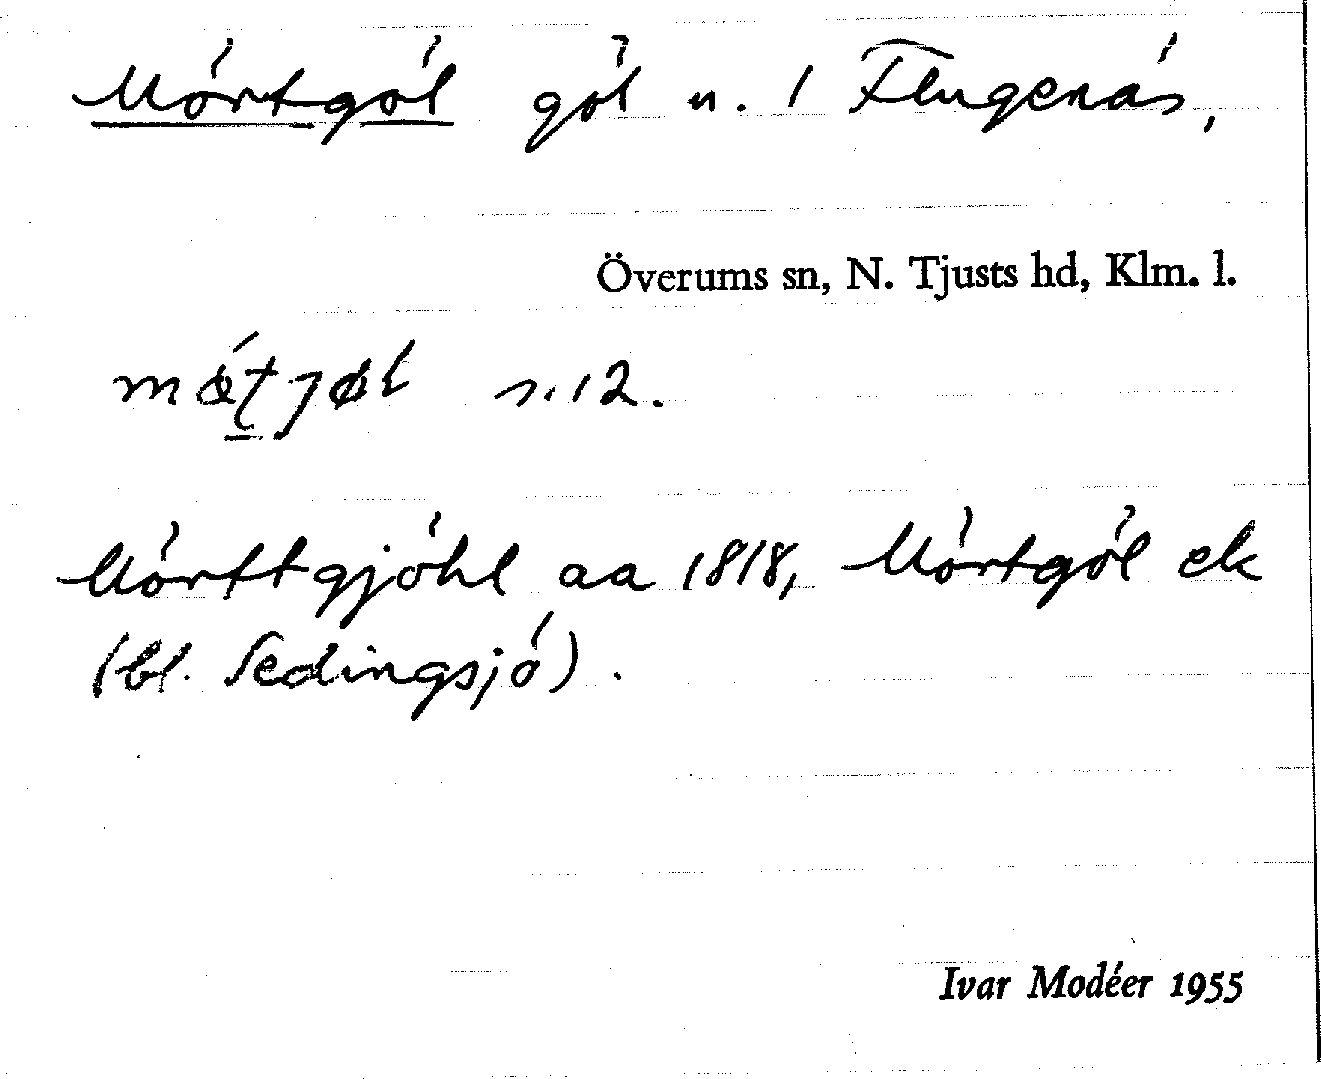 Mörtgöl göl n. 1 Flugenäs,
Överums sn, N. Tjusts hd, Klm. l.
n. 12.
Mörttgjöhl aa 1818, Mörtgöl ek
(bl. Sedingsjö).
Ivar Modéer 1955